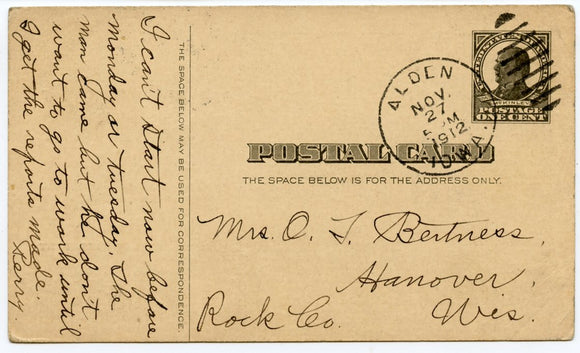 I can't start now before
Monday or Tuesday. The
man came but he don't
want to go to work until
I get the reports made.
Perry
THE SPACE BELOW MAY BE USED FOR CORRESPONDENCE.
ALDEN
NOV.
27
5 PM
1912
IOWA.
McKINLEY
POSTAGE
ONE CENT
POSTAL CARD
THE SPACE BELOW IS FOR THE ADDRESS ONLY.
Mrs. O. T. Bertness,
Hanover,
Rock Co. Wis.